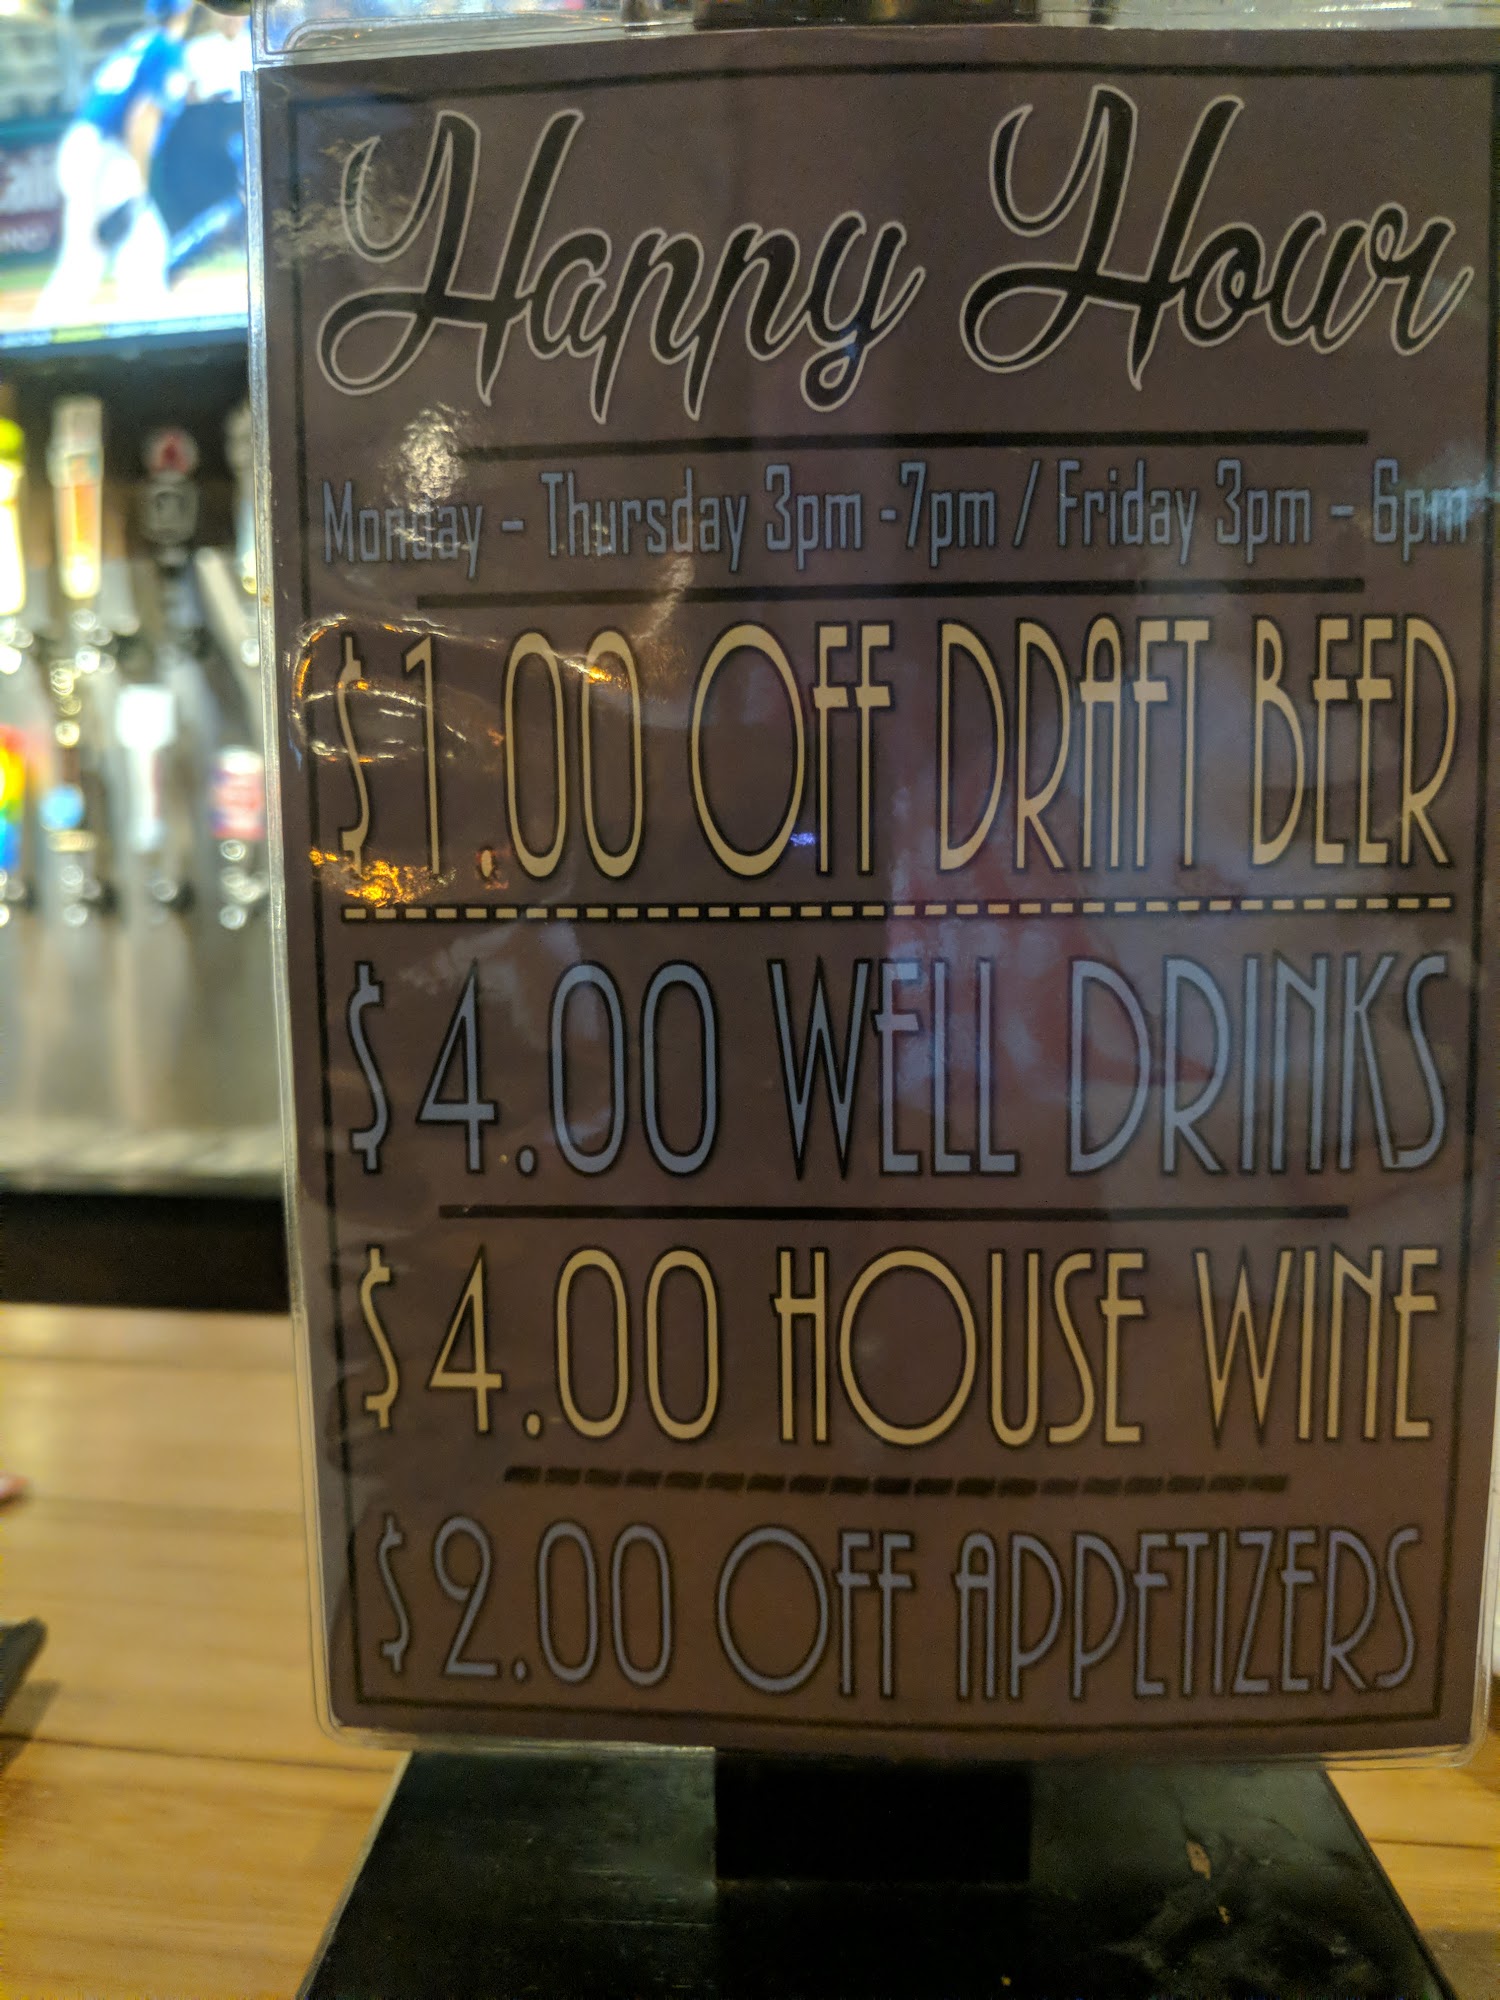 Happy Hour
Monday - Thursday 3pm -7pm / Friday 3pm - 6pm
$1.00 OFF DRAFT BEER
$4.00 WELL DRINKS
$4.00 HOUSE WINE
$2.00 OFF APPETIZERS